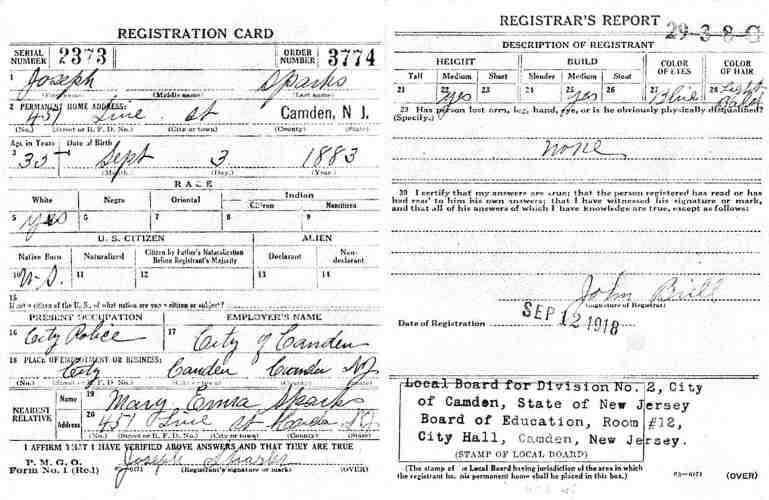 REGISTRATION CARD
SERIAL NUMBER 2373 ORDER NUMBER 3774
1 Joseph Sparks
(First name) (Middle name) (Last name)
2 PERMANENT HOME ADDRESS:
451 Line St Camden, N J.
(No.) (Street or R. F. D. No.) (City or town) (County) (State)
Age in Years Date of Birth
3 35 4 Sept 3 1883
(Month.) (Day.) (Year.)
RACE
White Negro Oriental Indian
Citizen Noncitizen
5 yes 6 7 8 9
U. S. CITIZEN ALIEN
Native Born Naturalized Citizen by Father's Naturalization Before Registrant's Majority Declarant Non-declarant
10 U.S. 11 12 13 14
15
If not a citizen of the U. S., of what nation are you a citizen or subject?
PRESENT OCCUPATION EMPLOYER'S NAME
16 City Police 17 City of Camden
18 PLACE OF EMPLOYMENT OR BUSINESS:
City Camden Camden NJ
(No.) (Street or R. F. D. No.) (City or town) (County) (State)
NEAREST RELATIVE Name 19 Mary Emma Sparks
Address 20 451 Line St Camden NJ
(No.) (Street or R. F. D. No.) (City or town) (County) (State)
I AFFIRM THAT I HAVE VERIFIED ABOVE ANSWERS AND THAT THEY ARE TRUE
P. M. G. O.
Form No. 1 (Red) Joseph Sparks
(Registrant's signature or mark) (OVER)
REGISTRAR'S REPORT
29-3-8-C
DESCRIPTION OF REGISTRANT
HEIGHT BUILD COLOR OF EYES COLOR OF HAIR
Tall Medium Short Slender Medium Stout
21 22 yes 23 24 25 yes 26 27 Blue 28 Light
29 Has person lost arm, leg, hand, eye, or is he obviously physically disqualified?
(Specify.)
none
30 I certify that my answers are true; that the person registered has read or has
had read to him his own answers; that I have witnessed his signature or mark,
and that all of his answers of which I have knowledge are true, except as follows:
John
(Signature of Registrar)
Date of Registration SEP 12 1918
Local Board for Division No. 2, City
of Camden, State of New Jersey
Board of Education, Room #12,
City Hall, Camden, New Jersey.
(STAMP OF LOCAL BOARD)
(The stamp of Local Board having jurisdiction of the area in which
the registrant has his permanent home shall be placed in this box.)
(OVER)